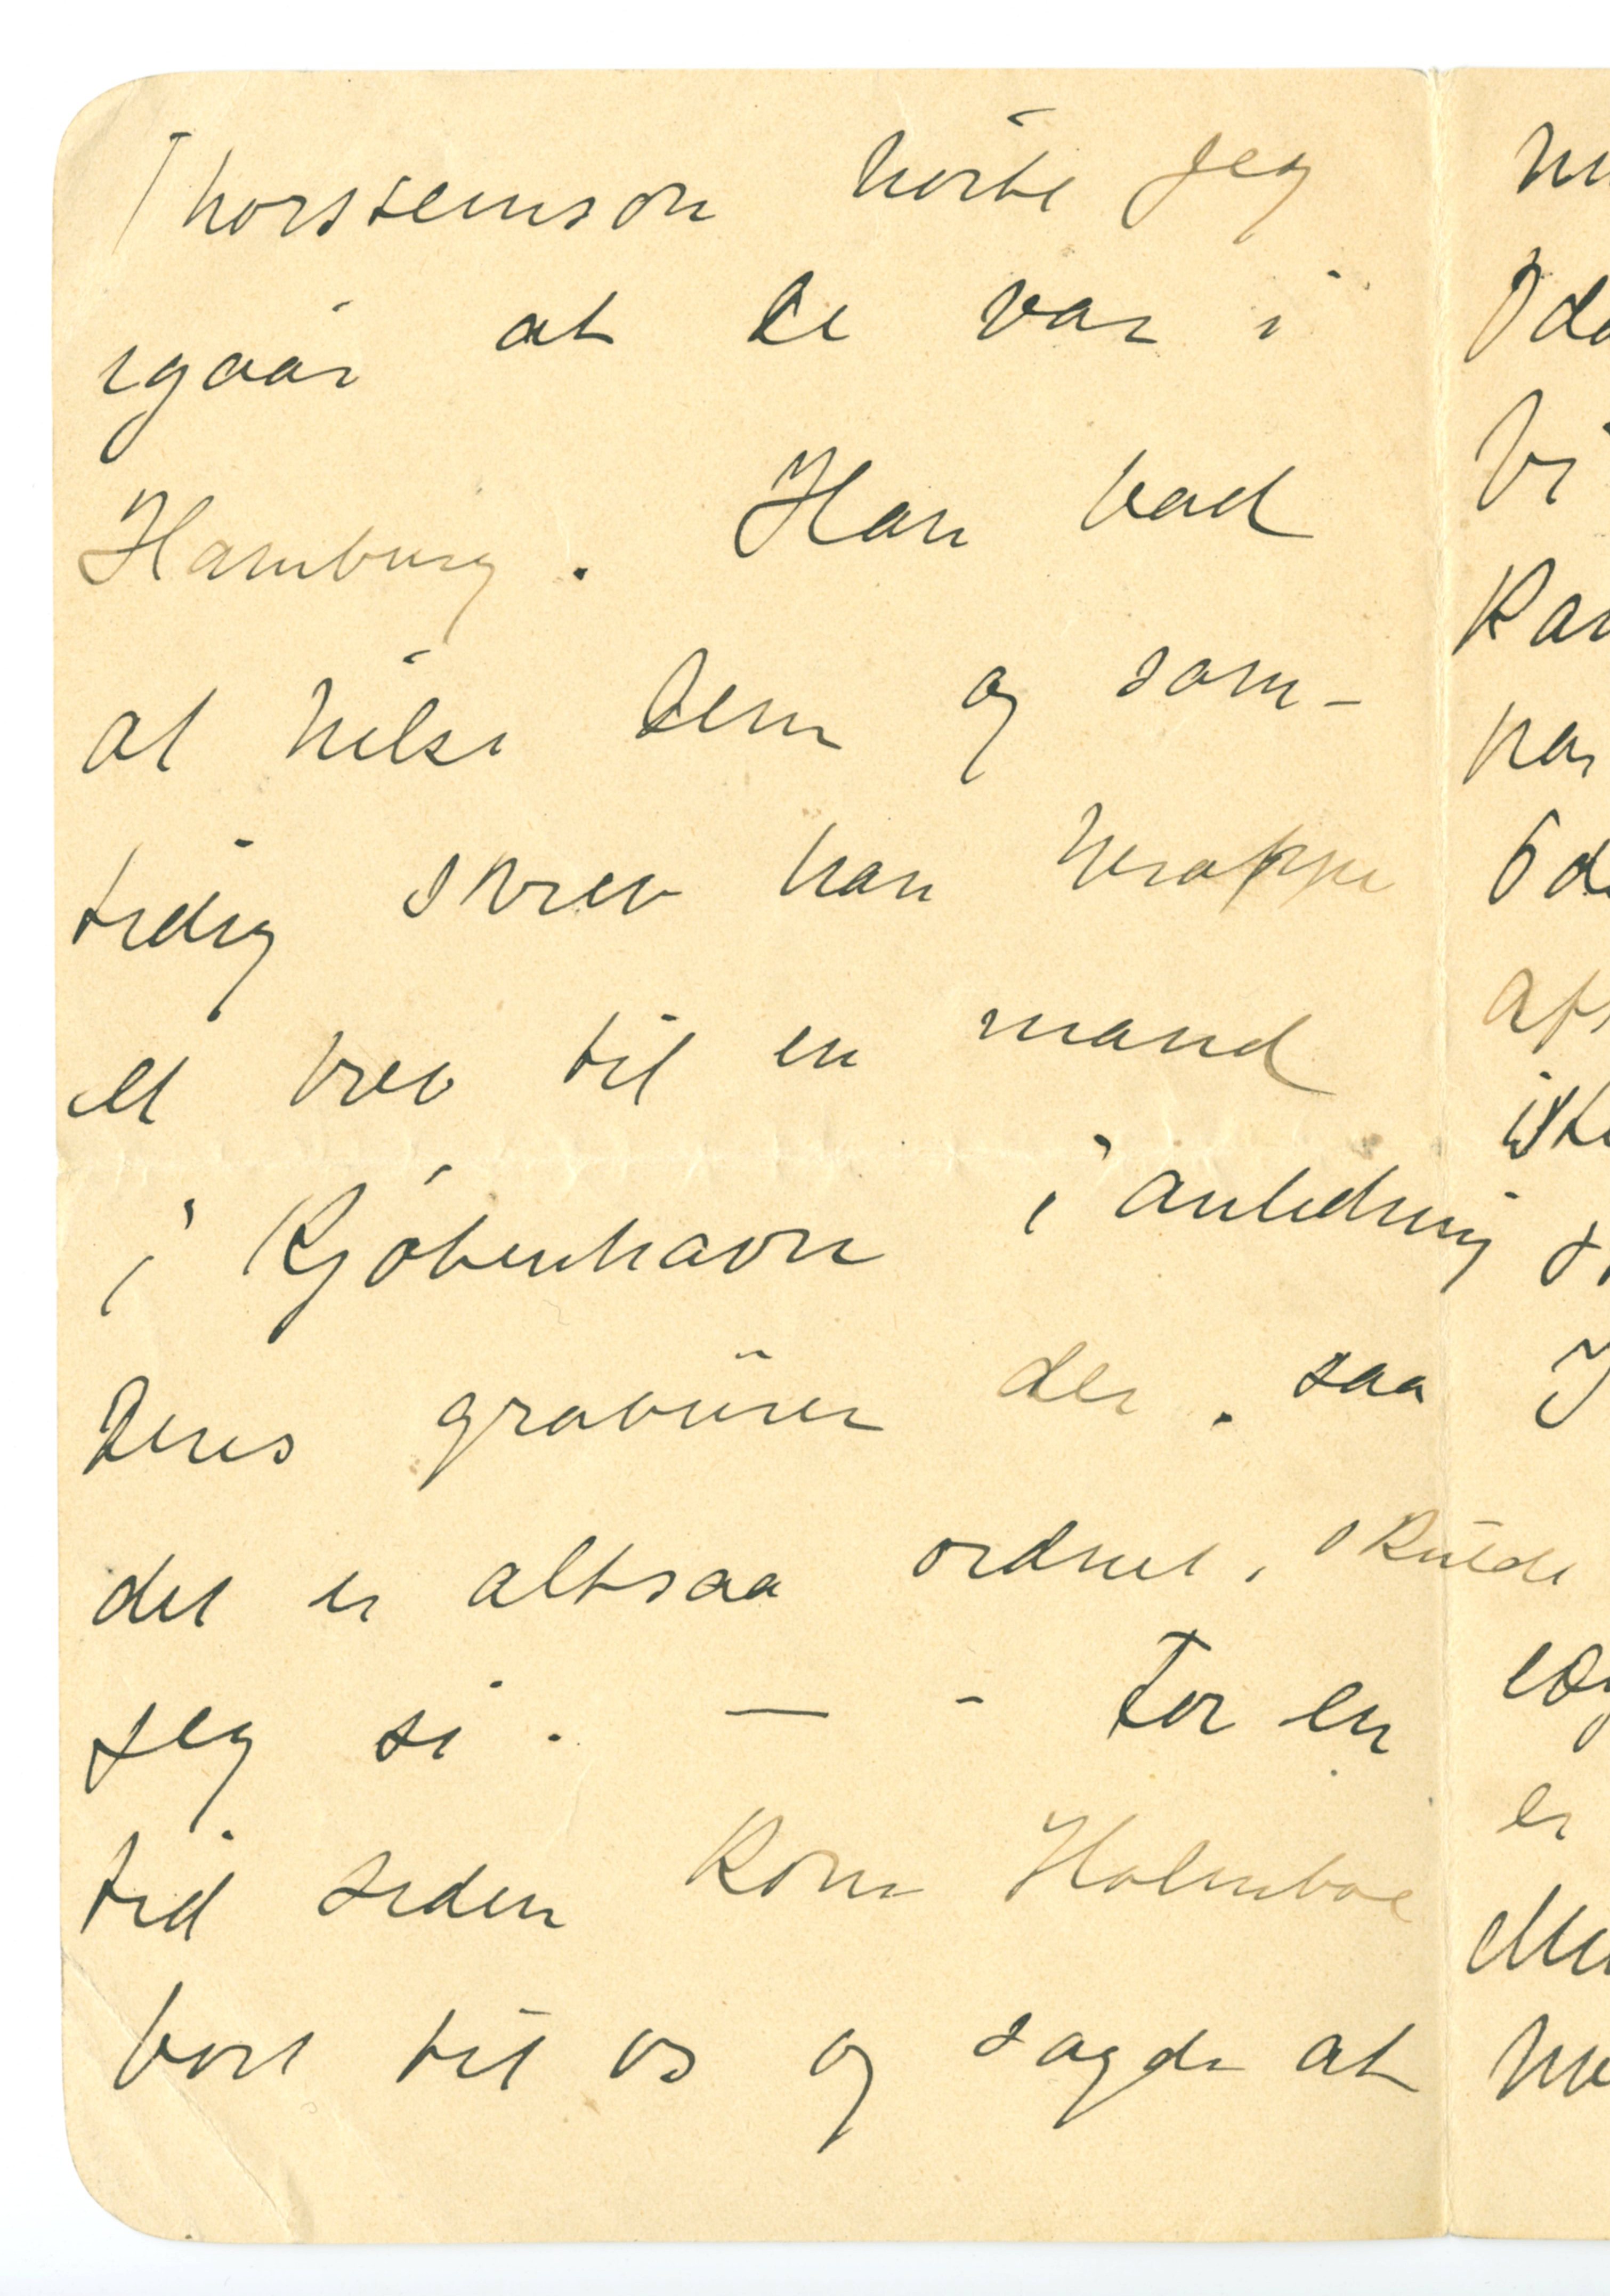 Thorsteinson hörte jeg
igaar at De var i
Hamburg. Han bad
at hilse Dem og sam-
tidig skrev han heroppe
et brev til en mand
i Kjöbenhavn i anledning
Deres gravürer der. saa
det er altsaa ordnet, skulde
jeg si. — - For en
tid siden kom Holmboe
bort til os og sagde at
Vi
er